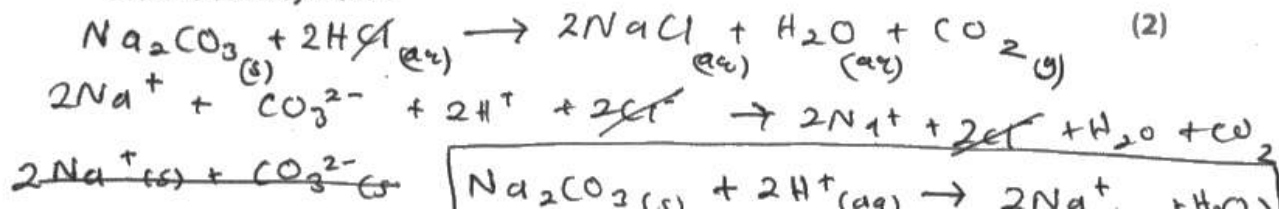 Na₂CO₃(s) + 2HCl(aq) → 2NaCl(aq) + H₂O(aq) + CO₂(g) (2)
2Na⁺ + CO₃²⁻ + 2H⁺ + 2Cl⁻ → 2Na⁺ + 2Cl⁻ + H₂O + CO₂
2Na⁺(s) + CO₃²⁻(s) Na₂CO₃(s) + 2H⁺(aq) → 2Na⁺ + H₂O